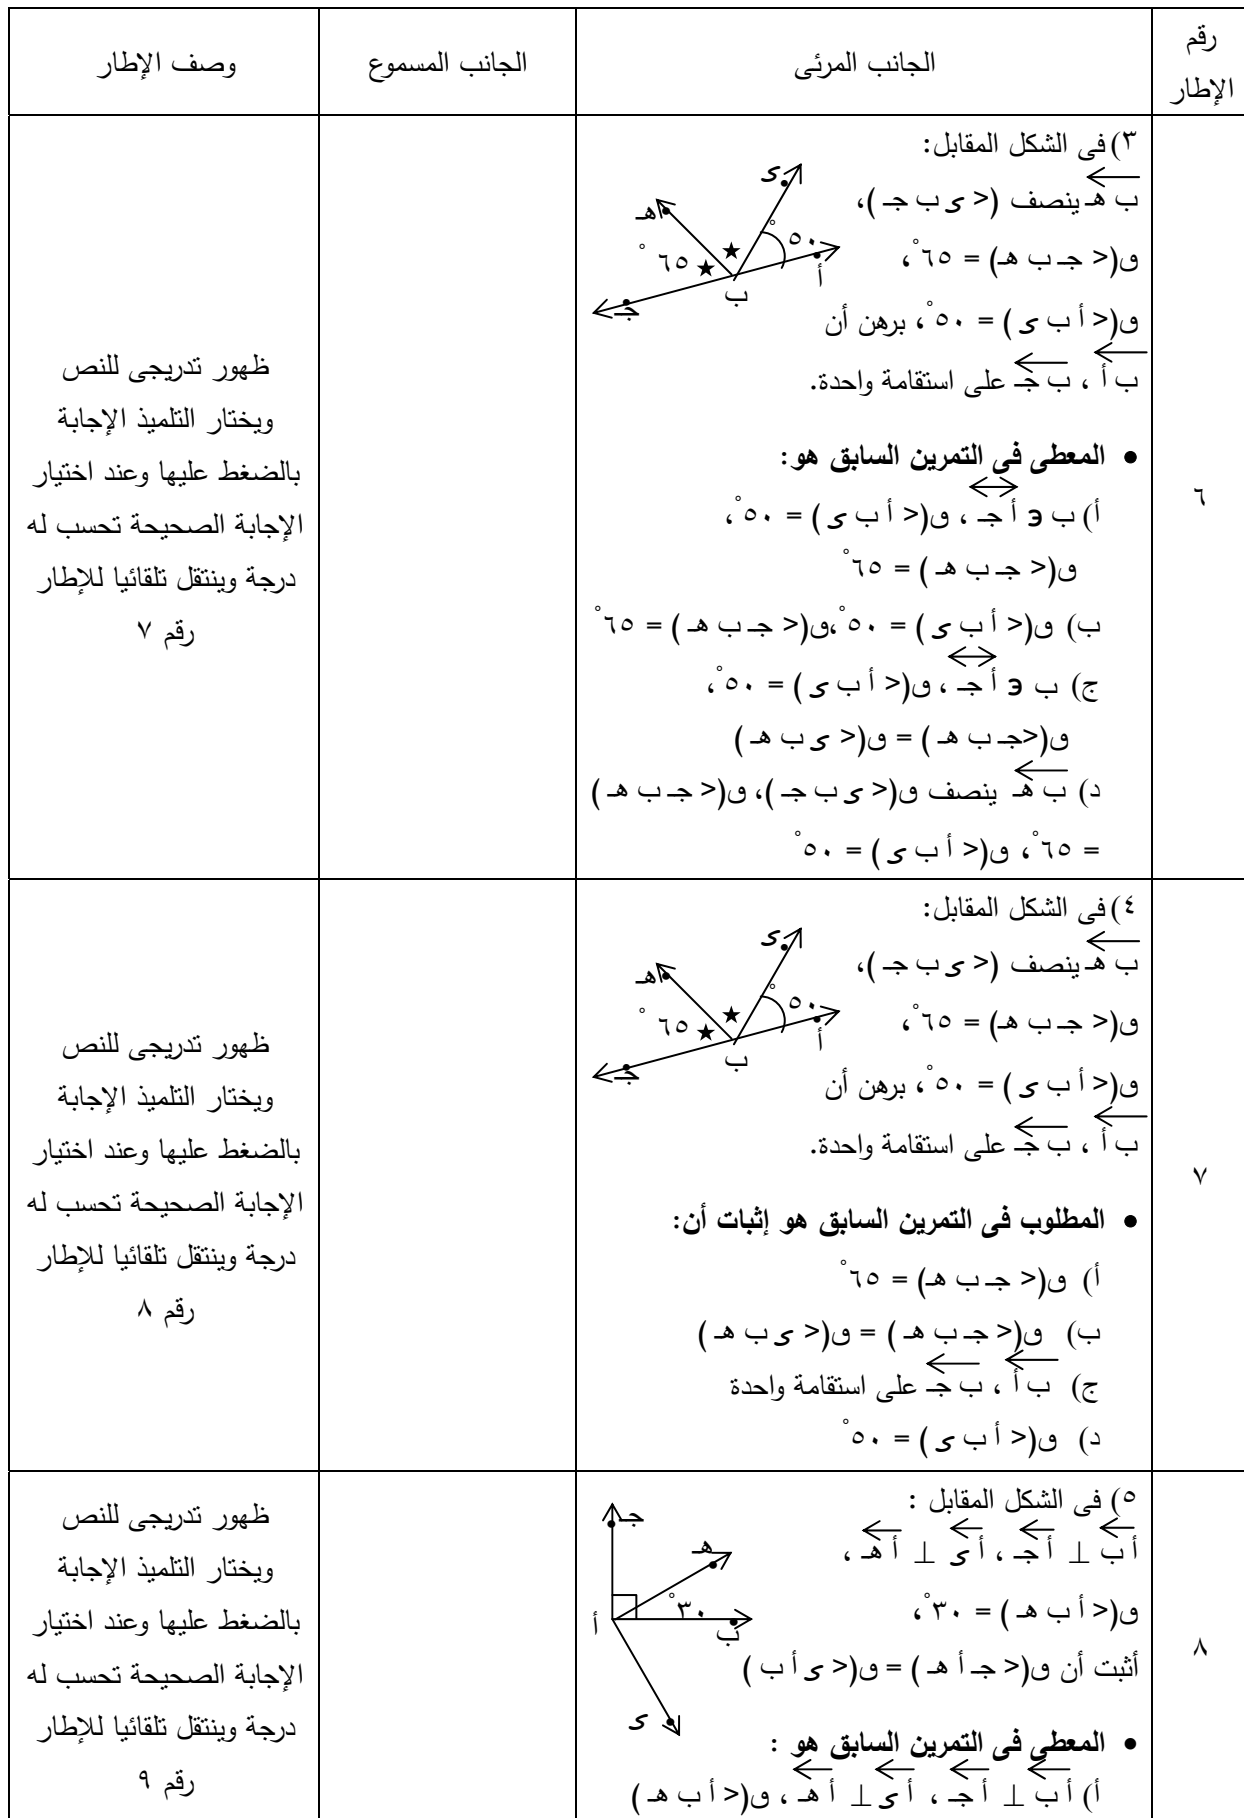 رقم الإطار
الجانب المرئى
الجانب المسموع
وصف الإطار
٦
٣) فى الشكل المقابل:
ب هـ ينصف (< ى ب جـ )،
ق(< جـ ب هـ) = ٦٥°،
ق(< أ ب ى ) = ٥٠°، برهن أن
ب أ ، ب جـ على استقامة واحدة.
ى
هـ
٥٠°
٦٥°
أ
ب
جـ
• المعطى فى التمرين السابق هو:
أ) ب э أ جـ ، ق(< أ ب ى ) = ٥٠°،
ق(< جـ ب هـ ) = ٦٥°
ب) ق(< أ ب ى ) = ٥٠°،ق(< جـ ب هـ ) = ٦٥°
ج) ب э أ جـ ، ق(< أ ب ى ) = ٥٠°،
ق(<جـ ب هـ ) = ق(< ى ب هـ )
د) ب هـ ينصف ق(< ى ب جـ )، ق(< جـ ب هـ )
= ٦٥°، ق(< أ ب ى ) = ٥٠°
ظهور تدريجى للنص
ويختار التلميذ الإجابة
بالضغط عليها وعند اختيار
الإجابة الصحيحة تحسب له
درجة وينتقل تلقائيا للإطار
رقم ٧
٧
٤) فى الشكل المقابل:
ب هـ ينصف (< ى ب جـ )،
ق(< جـ ب هـ) = ٦٥°،
ق(< أ ب ى ) = ٥٠°، برهن أن
ب أ ، ب جـ على استقامة واحدة.
ى
هـ
٥٠°
٦٥°
أ
ب
جـ
• المطلوب فى التمرين السابق هو إثبات أن:
أ) ق(< جـ ب هـ) = ٦٥°
ب) ق(< جـ ب هـ ) = ق(< ى ب هـ )
ج) ب أ ، ب جـ على استقامة واحدة
د) ق(< أ ب ى ) = ٥٠°
ظهور تدريجى للنص
ويختار التلميذ الإجابة
بالضغط عليها وعند اختيار
الإجابة الصحيحة تحسب له
درجة وينتقل تلقائيا للإطار
رقم ٨
٨
٥) فى الشكل المقابل :
أ ب ⊥ أ جـ ، أ ى ⊥ أ هـ ،
ق(< أ ب هـ ) = ٣٠°،
أثبت أن ق(< جـ أ هـ ) = ق(< ى أ ب )
جـ
هـ
٣٠°
أ
ب
ى
• المعطى فى التمرين السابق هو :
أ) أ ب ⊥ أ جـ ، أ ى ⊥ أ هـ ، ق(< أ ب هـ )
ظهور تدريجى للنص
ويختار التلميذ الإجابة
بالضغط عليها وعند اختيار
الإجابة الصحيحة تحسب له
درجة وينتقل تلقائيا للإطار
رقم ٩